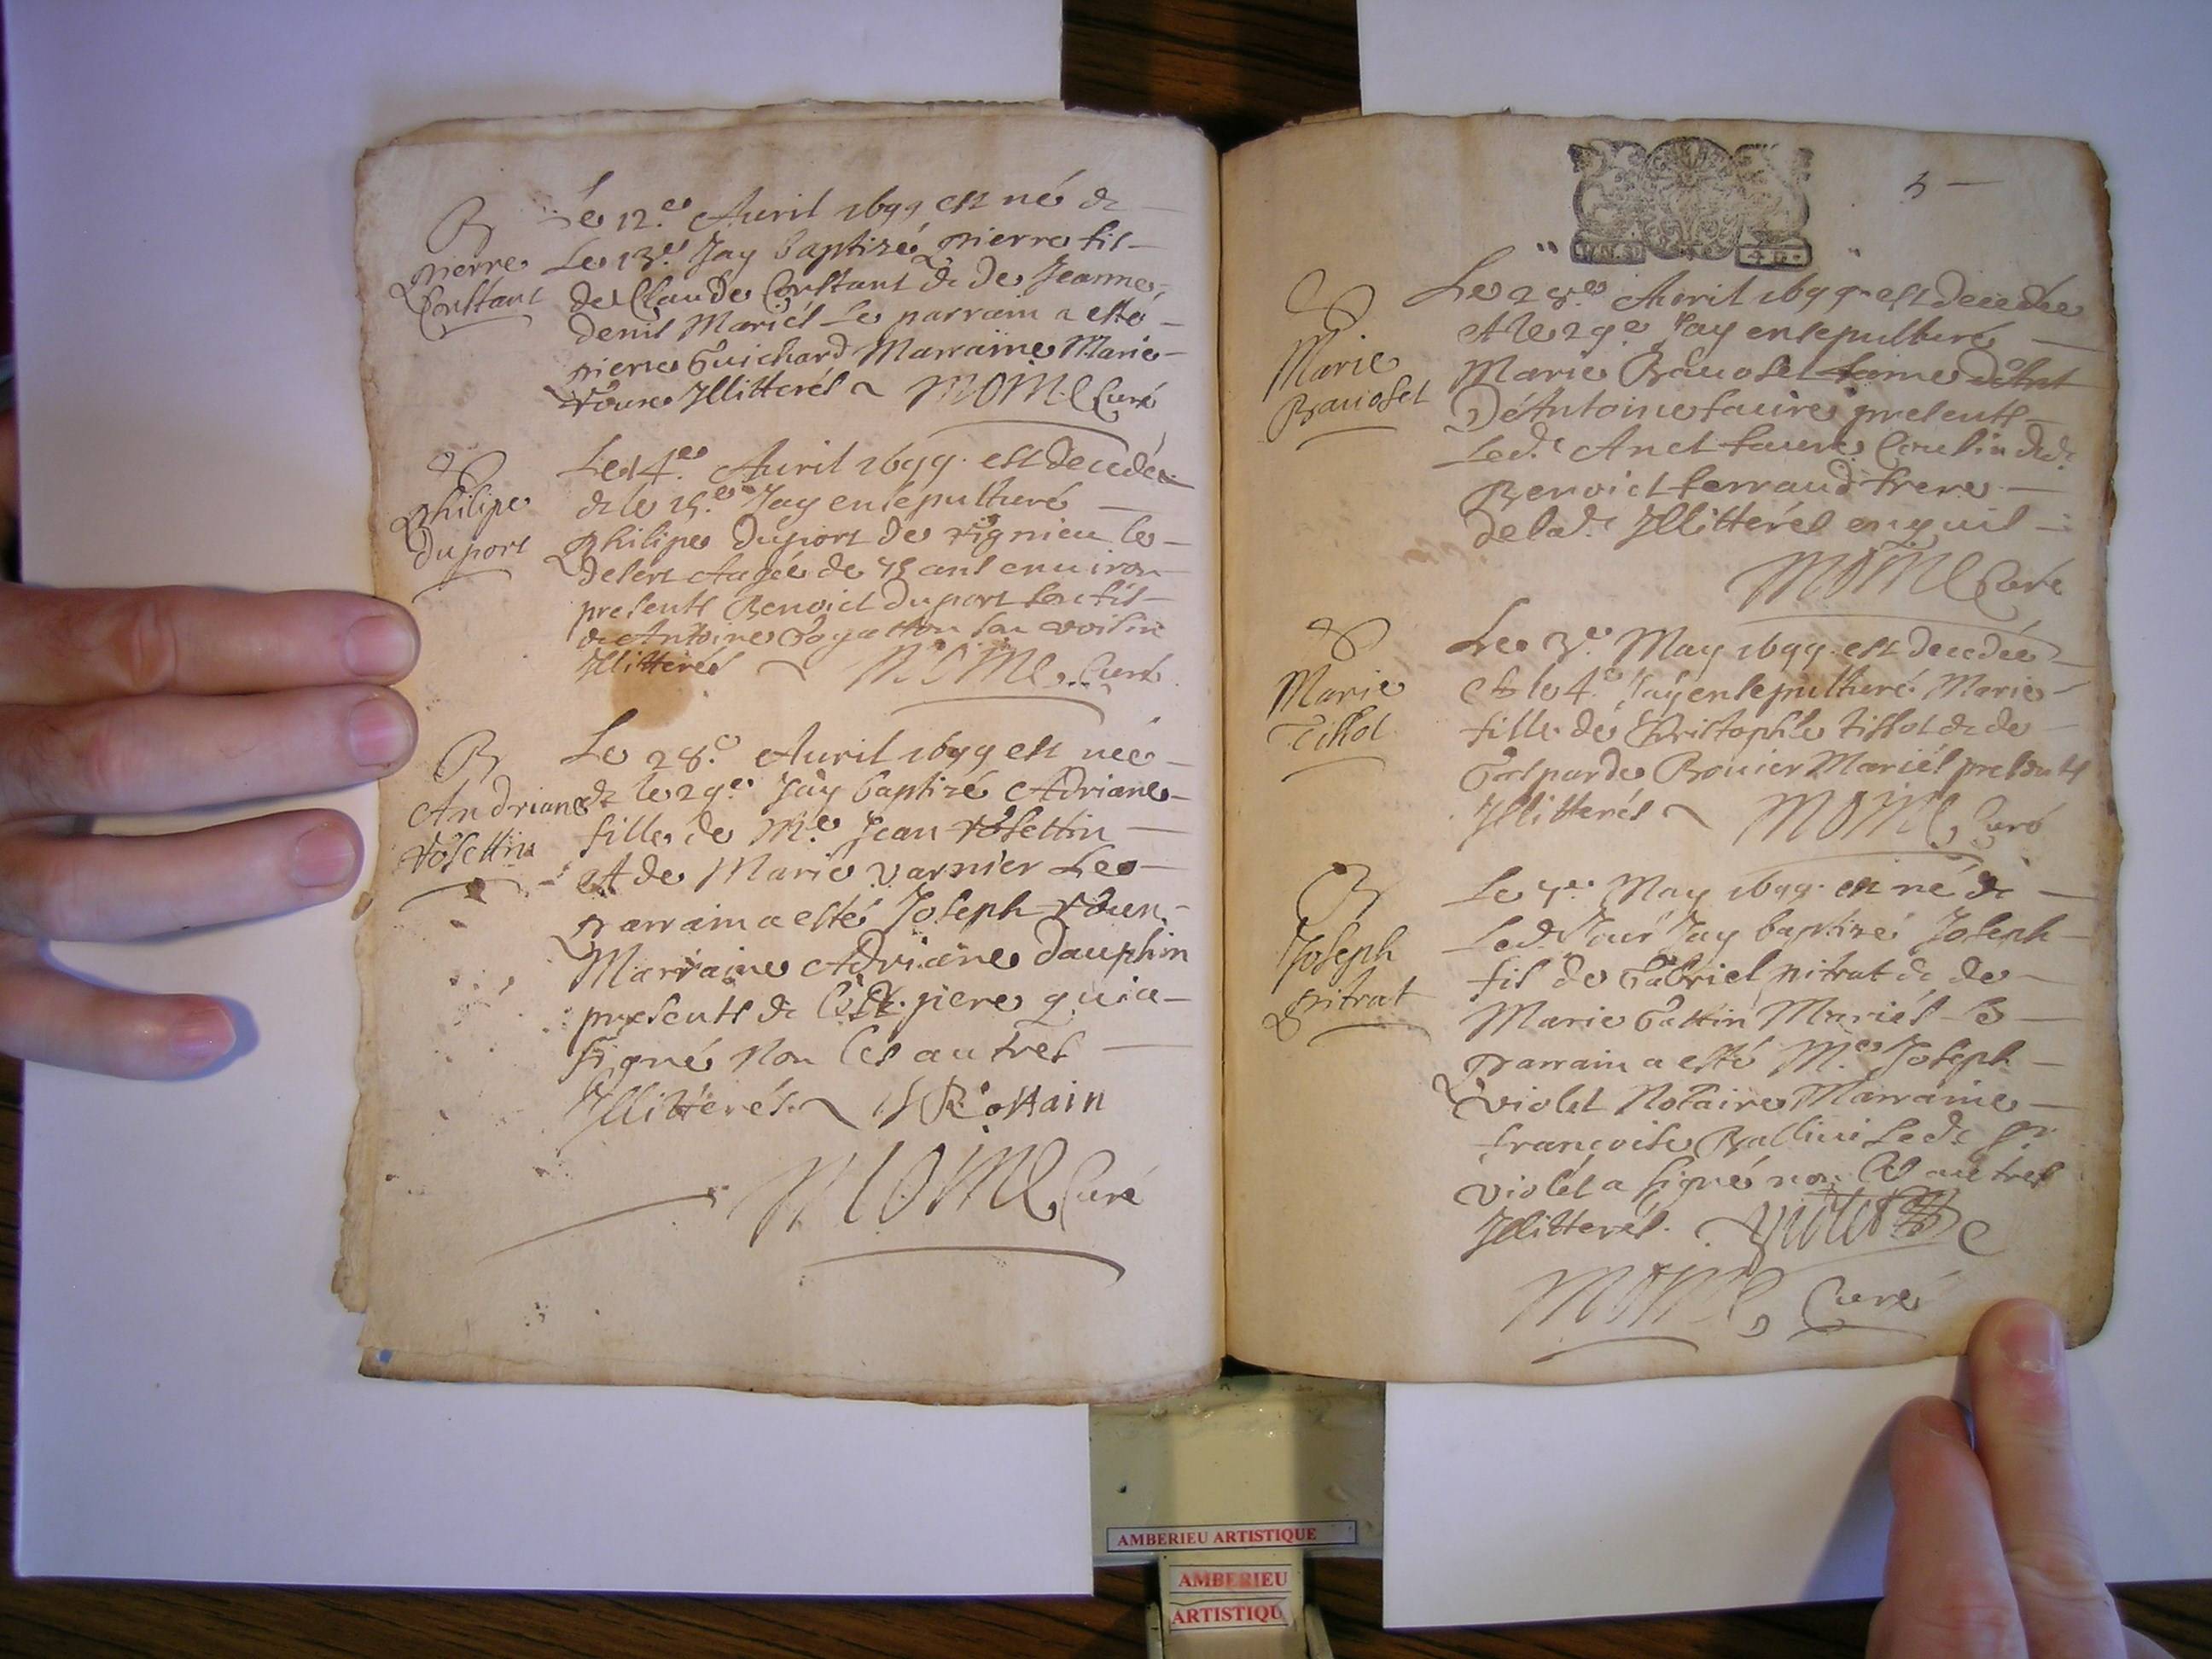 B
Pierre
Constant
Le 12.e Auril 1699 est né &
Le 13.e Jay baptizé pierre fils
de Claude Constant & de Jeanne
denis Mariés Le parrain a esté
pierre Guichard Marraine Marie
Illitterés MOINE Curé
Philipe
duport
Le 14.e Auril 1699. est decedée
& le 15.e Jay ensepulturé
Philipe duport de rignieu le
desert Aagée de 75 ans enuiron
presents Benoict duport son fils
& Antoine son voisin
Illitterés MOINE Curé
B
Andriane
rosettin
Le 28.e Auril 1699 est née
& le 29.e Jay baptizé Adriane
fille de M.e Jean rosettin
et de Marie varnier Le
parrain a esté Joseph
Marraine Adriane dauphin
presents & pere qui a
signé Non les autres
Illitterés Rostain
MOINE Curé
3
Marie
Le 28.e Auril 1699 est decedée
et le 29.e Jay ensepulturé
Marie
D'Antoine faure presents
Led. faure Cousin &
Benoict ferraud frere
de lad. Illitterés enquis
MOINE Curé
Marie
Tissot
Le 3.e May 1699. est decedée
et le 4.e Jay ensepulturé Marie
fille de Christophle tissot & de
Gasparde Bouier Mariés presents
Illitterés MOINE Curé
B
Joseph
pitrat
Le 7.e May 1699. est né &
Led. Jour Jay baptizé Joseph
fils de Gabriel pitrat & de
Marie Mariés Le
parrain a esté M.e Joseph
violet Notaire Marraine
francoise Ballini Led. Sr.
violet a signé non les autres
Illitterés. Violet
MOINE Curé
AMBERIEU ARTISTIQUE
AMBERIEU
ARTISTIQU